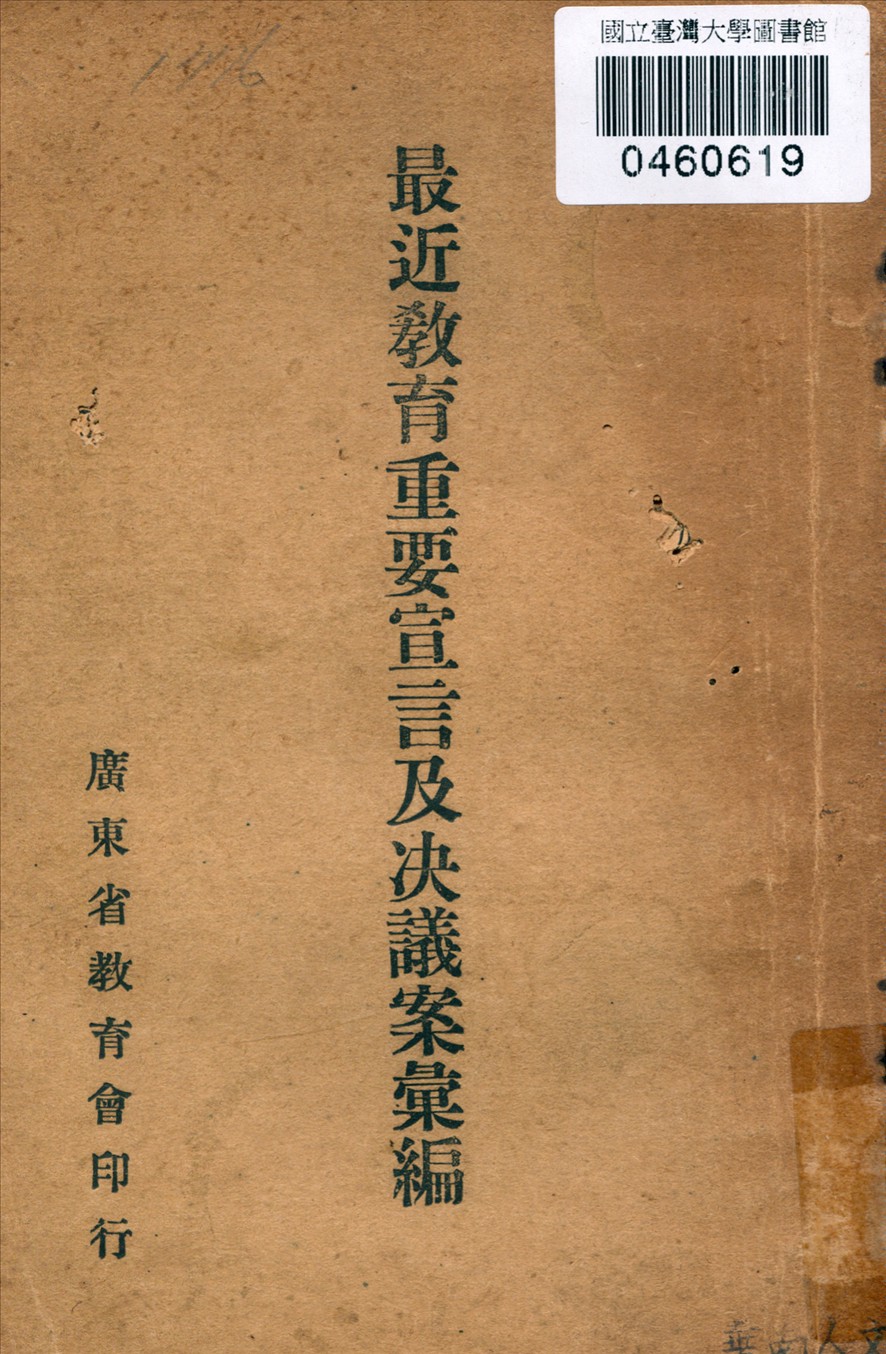 國立臺灣大學圖書館
0460619
最近教育重要宣言及决議案彙編
廣東省教育會印行